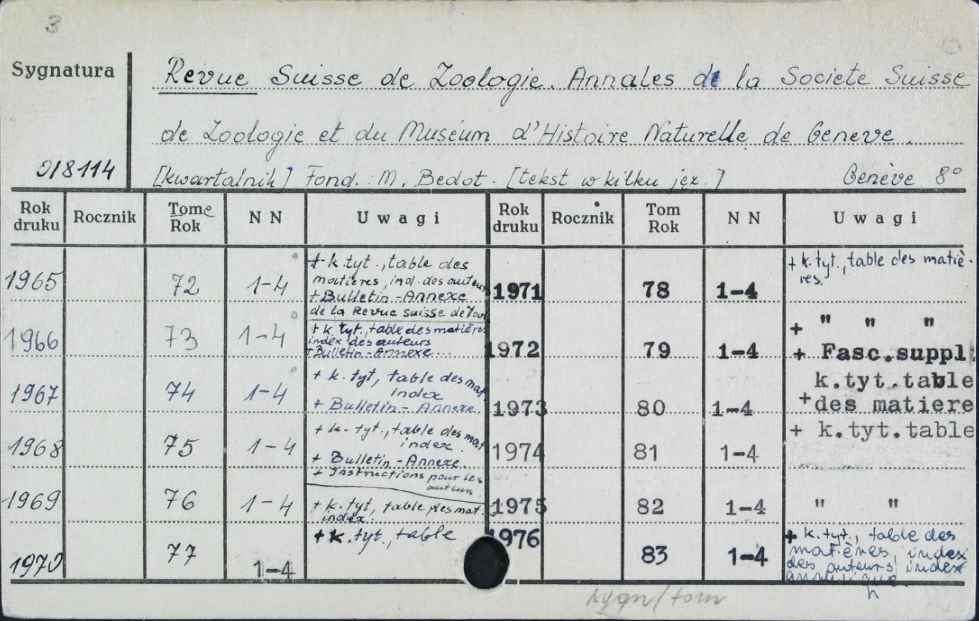 3
Sygnatura
Revue Suisse de Zoologie. Annales de la Societe Suisse
de Zoologie et du Muséum d'Histoire Naturelle de Geneve.
0/8114
[kwartalnik] Fond. : M. Bedot. [tekst w kilku jęz.] Genève 8°
Rok druku Rocznik Tome Rok NN Uwagi Rok druku Rocznik Tom Rok NN Uwagi
1965 72 1-4
+ k. tyt., table des
matières, ind. des auteurs
+ Bulletin-Annexe
de la Revue suisse de Zool
1971 78 1-4
+ k. tyt., table des matiè-
res.
1966 73 1-4
+ k. tyt., table des matières
index des auteurs
+ Bulletin-Annexe
1972 79 1-4
+ " " "
+ Fasc.suppl
1967 74 1-4
+ k. tyt., table des mat
index
+ Bulletin-Annexe
1973 80 1-4
k.tyt.table
+ des matiere
1968 75 1-4
+ k. tyt., table des mat
index.
+ Bulletin-Annexe.
+ Instructions pour les
auteurs
1974 81 1-4
+ k.tyt.table
1969 76 1-4
+ k. tyt, table des mat.
index.
1975 82 1-4
" "
1970 77 1-4
+ k. tyt., table
1976 83 1-4
+ k. tyt., table des
matières, index
des auteurs index
sygn/tom